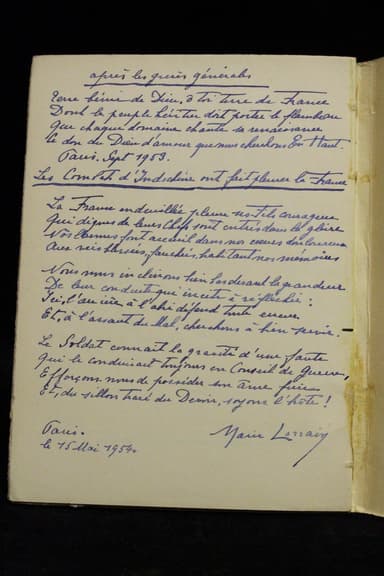 après les grèves générales
Terre bénie de Dieu, ô toi terre de France
Dont le peuple héritier doit porter le flambeau
Que chaque domaine chante sa renaissance
Le don du Dieu d'amour que nous cherchons En Haut.
Paris. Sept 1953.
Les Combats d'Indochine ont fait pleurer la France
La France endeuillée pleure ses fils courageux
Qui dignes de leurs Chefs sont entrés dans la gloire
Vos larmes font accueil dans nos cœurs douloureux
Aux vies fauchées, habitant nos mémoires
Nous nous inclinons bien bas devant la grandeur
De leur conduite qui incite à réfléchir :
Ici, l'ennemi à l'abri défend toute erreur
Et, à l'assaut du Mal, cherchons à bien servir.
Le Soldat connait la gravité d'une faute
qui le conduirait toujours en Conseil de Guerre,
Efforçons nous de posséder son âme fière
Et, du sillon tracé du Devoir, soyons l'hôte !
Paris.
le 15 Mai 1954.
Lorrain